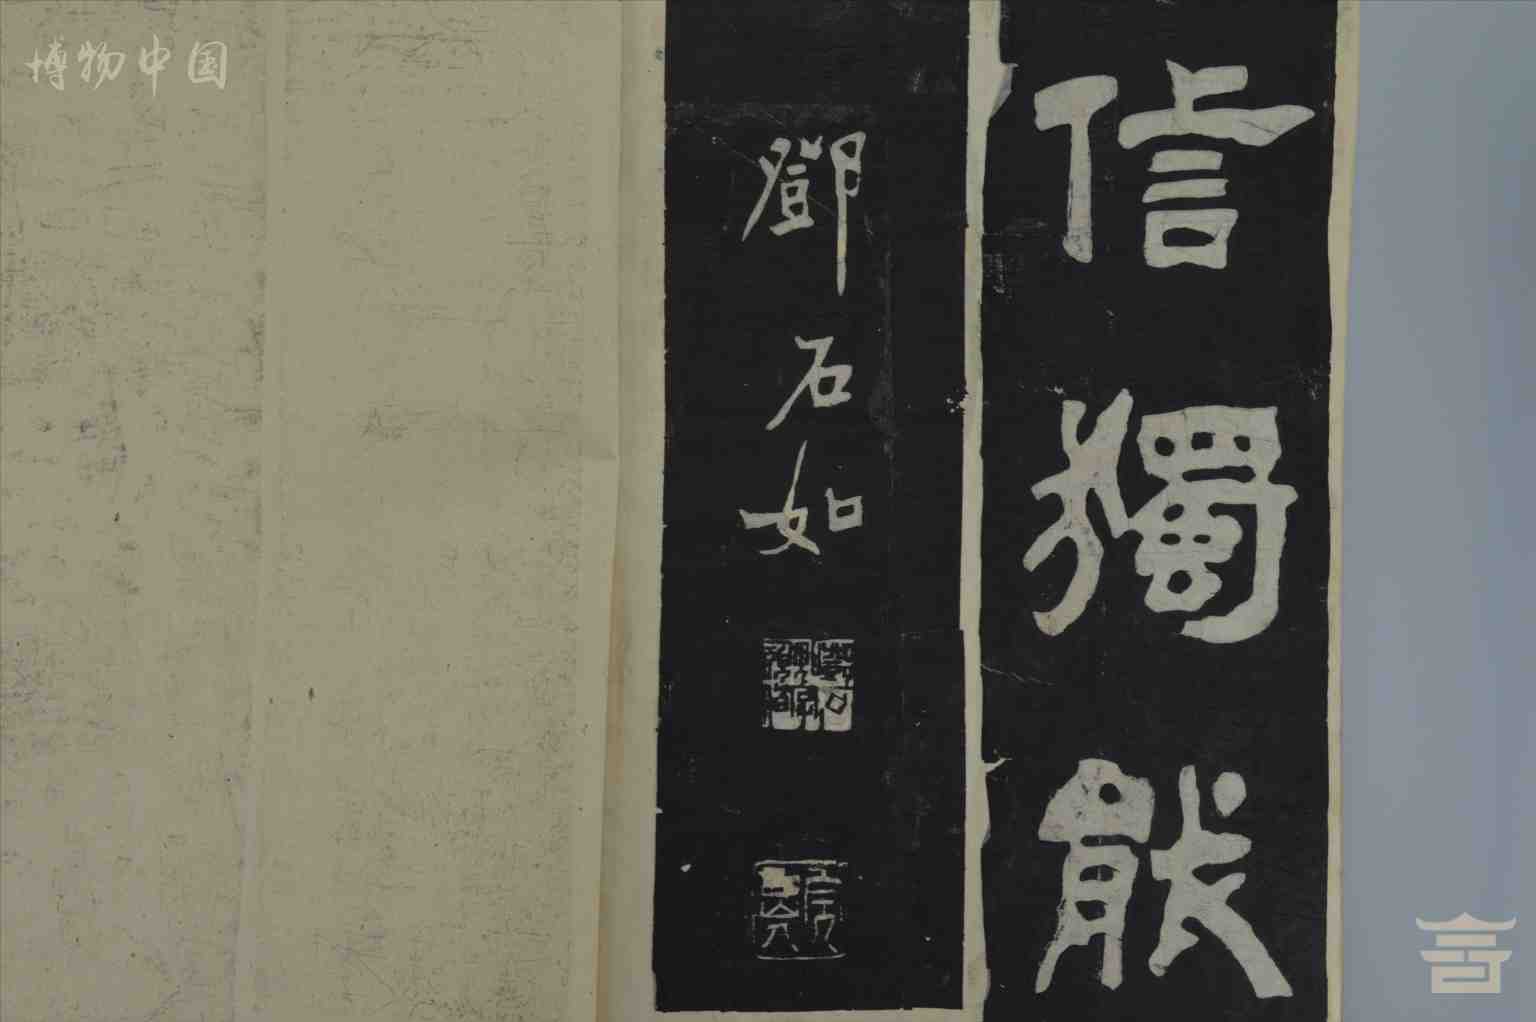 博物中国
信獨能
鄧石如